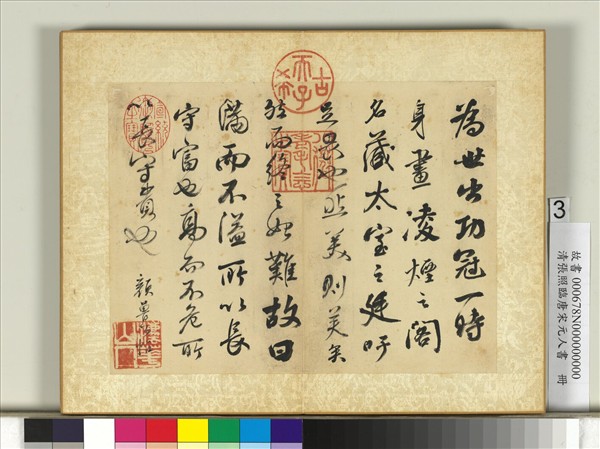 為世出功冠一時
身畫凌煙之閣
名藏太室之廷吁
足畏也然美則美矣
然而終之始難故曰
滿而不溢所以長
守富也高而不危所
以長守貴也
顏魯
古希天子
3
故書 000678N000000000
清張照臨唐宋元人書 冊